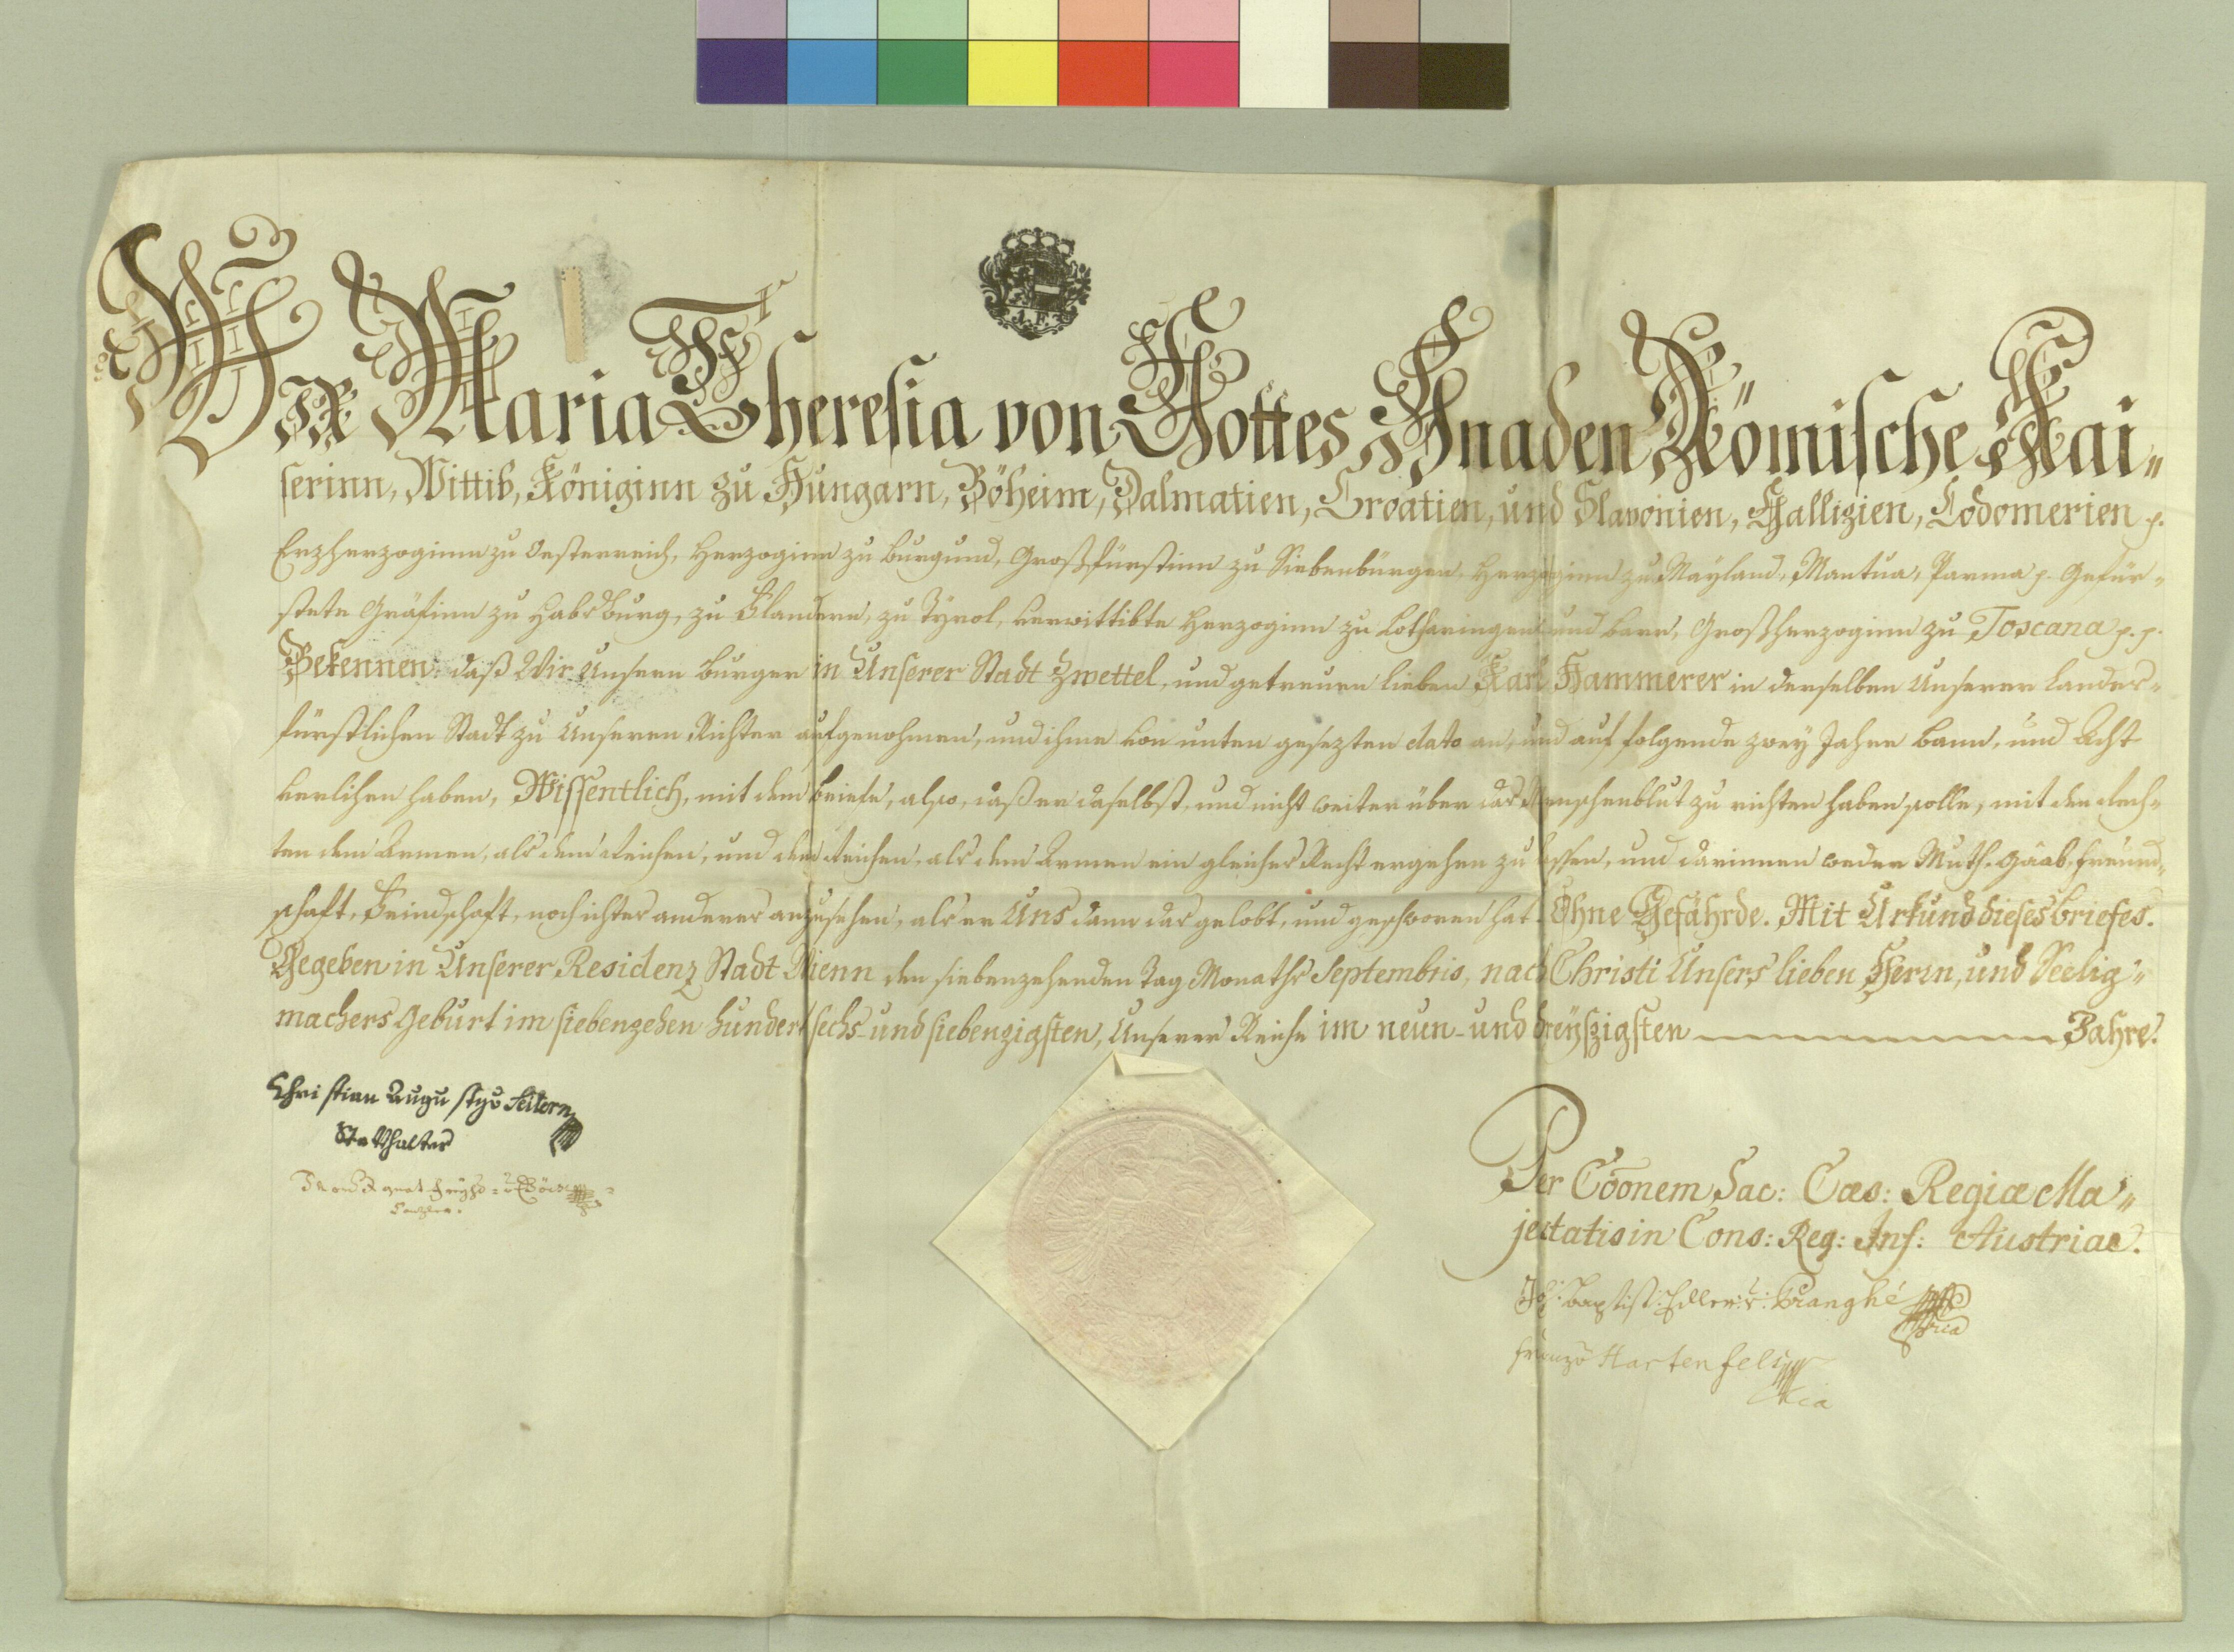 Wir Maria Theresia von Gottes Gnaden Römische Kai„
serinn, Wittib, Königinn zu Hungarn, Böheim, Dalmatien, Croatien, und Slavonien, Gallizien, Lodomerien p.
Erzherzoginn zu Oesterreich, Herzoginn zu Burgund, Großfürstinn zu Siebenbürgen, Herzoginn zu Mayland, Mantua, Parma p. Gefür„
stete Gräfinn zu Habsburg, zu Flandern, zu Tyrol, verwittibte Herzoginn zu Lotharingen und Barr, Großherzoginn zu Toscana p. p.
Bekennen: daß Wir Unsern Burger in Unserer Stadt Zwettel, und getreuen lieben Karl Hammerer in derselben Unserer Landes„
fürstlichen Stadt zu Unseren Richter aufgenohmen, und ihme von unten gesezten dato an, und auf folgende zwey Jahre Bann, und Acht
verlihen haben, Wissentlich, mit dem Briefe, also, daß er daselbst, und nicht weiter über das Menschenblut zu richten haben solle, mit den Rech„
ten dem Armen, als dem Reichen, und dem Reichen, als dem Armen ein gleiches Recht ergehen zu lassen, und darinnen weder Muth, Gaab, Freund„
schaft, Feindschaft, noch ichtes anderes anzusehen, als er Uns dann das gelobt, und geschworen hat. Ohne Gefährde. Mit Urkund dieses briefes.
Gegeben in Unserer Residenz Stadt Wienn den siebenzehenden Tag Monaths Septembris, nach Christi Unsers lieben Herrn, und Seelig„
machers Geburt im siebenzehen hundert sechs- und siebenzigsten, Unserer Reiche im neun- und dreyßzigsten Jahre.
Christian August Seilern
Statthalter
Per Coõnem Sac: Cæs: Regiæ Ma„
jestatis in Cons: Reg: Inf: Austriae.
Joh: Baptist: Edler v: Pranghé
Franz v Hartenfels